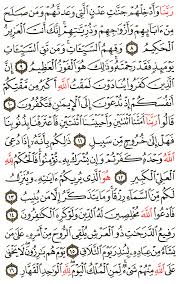 رَبَّنَا وَأَدْخِلْهُمْ جَنَّٰتِ عَدْنٍ ٱلَّتِى وَعَدتَّهُمْ وَمَن صَلَحَ
مِنْ ءَابَآئِهِمْ وَأَزْوَٰجِهِمْ وَذُرِّيَّٰتِهِمْ إِنَّكَ أَنتَ ٱلْعَزِيزُ
ٱلْحَكِيمُ ٨ وَقِهِمُ ٱلسَّيِّـَٔاتِ وَمَن تَقِ ٱلسَّيِّـَٔاتِ
يَوْمَئِذٍ فَقَدْ رَحِمْتَهُۥ وَذَٰلِكَ هُوَ ٱلْفَوْزُ ٱلْعَظِيمُ ٩ إِنَّ
ٱلَّذِينَ كَفَرُوا۟ يُنَادَوْنَ لَمَقْتُ ٱللَّهِ أَكْبَرُ مِن مَّقْتِكُمْ
أَنفُسَكُمْ إِذْ تُدْعَوْنَ إِلَى ٱلْإِيمَٰنِ فَتَكْفُرُونَ ١٠
قَالُوا۟ رَبَّنَآ أَمَتَّنَا ٱثْنَتَيْنِ وَأَحْيَيْتَنَا ٱثْنَتَيْنِ فَٱعْتَرَفْنَا بِذُنُوبِنَا
فَهَلْ إِلَىٰ خُرُوجٍ مِّن سَبِيلٍ ١١ ذَٰلِكُم بِأَنَّهُۥٓ إِذَا دُعِىَ
ٱللَّهُ وَحْدَهُۥ كَفَرْتُمْ وَإِن يُشْرَكْ بِهِۦ تُؤْمِنُوا۟ فَٱلْحُكْمُ لِلَّهِ
ٱلْعَلِىِّ ٱلْكَبِيرِ ١٢ هُوَ ٱلَّذِى يُرِيكُمْ ءَايَٰتِهِۦ وَيُنَزِّلُ
لَكُم مِّنَ ٱلسَّمَآءِ رِزْقًا وَمَا يَتَذَكَّرُ إِلَّا مَن يُنِيبُ ١٣
فَٱدْعُوا۟ ٱللَّهَ مُخْلِصِينَ لَهُ ٱلدِّينَ وَلَوْ كَرِهَ ٱلْكَٰفِرُونَ ١٤
رَفِيعُ ٱلدَّرَجَٰتِ ذُو ٱلْعَرْشِ يُلْقِى ٱلرُّوحَ مِنْ أَمْرِهِۦ عَلَىٰ مَن
يَشَآءُ مِنْ عِبَادِهِۦ لِيُنذِرَ يَوْمَ ٱلتَّلَاقِ ١٥ يَوْمَ هُم بَٰرِزُونَ لَا يَخْفَىٰ
عَلَى ٱللَّهِ مِنْهُمْ شَىْءٌ لِّمَنِ ٱلْمُلْكُ ٱلْيَوْمَ لِلَّهِ ٱلْوَٰحِدِ ٱلْقَهَّارِ ١٦